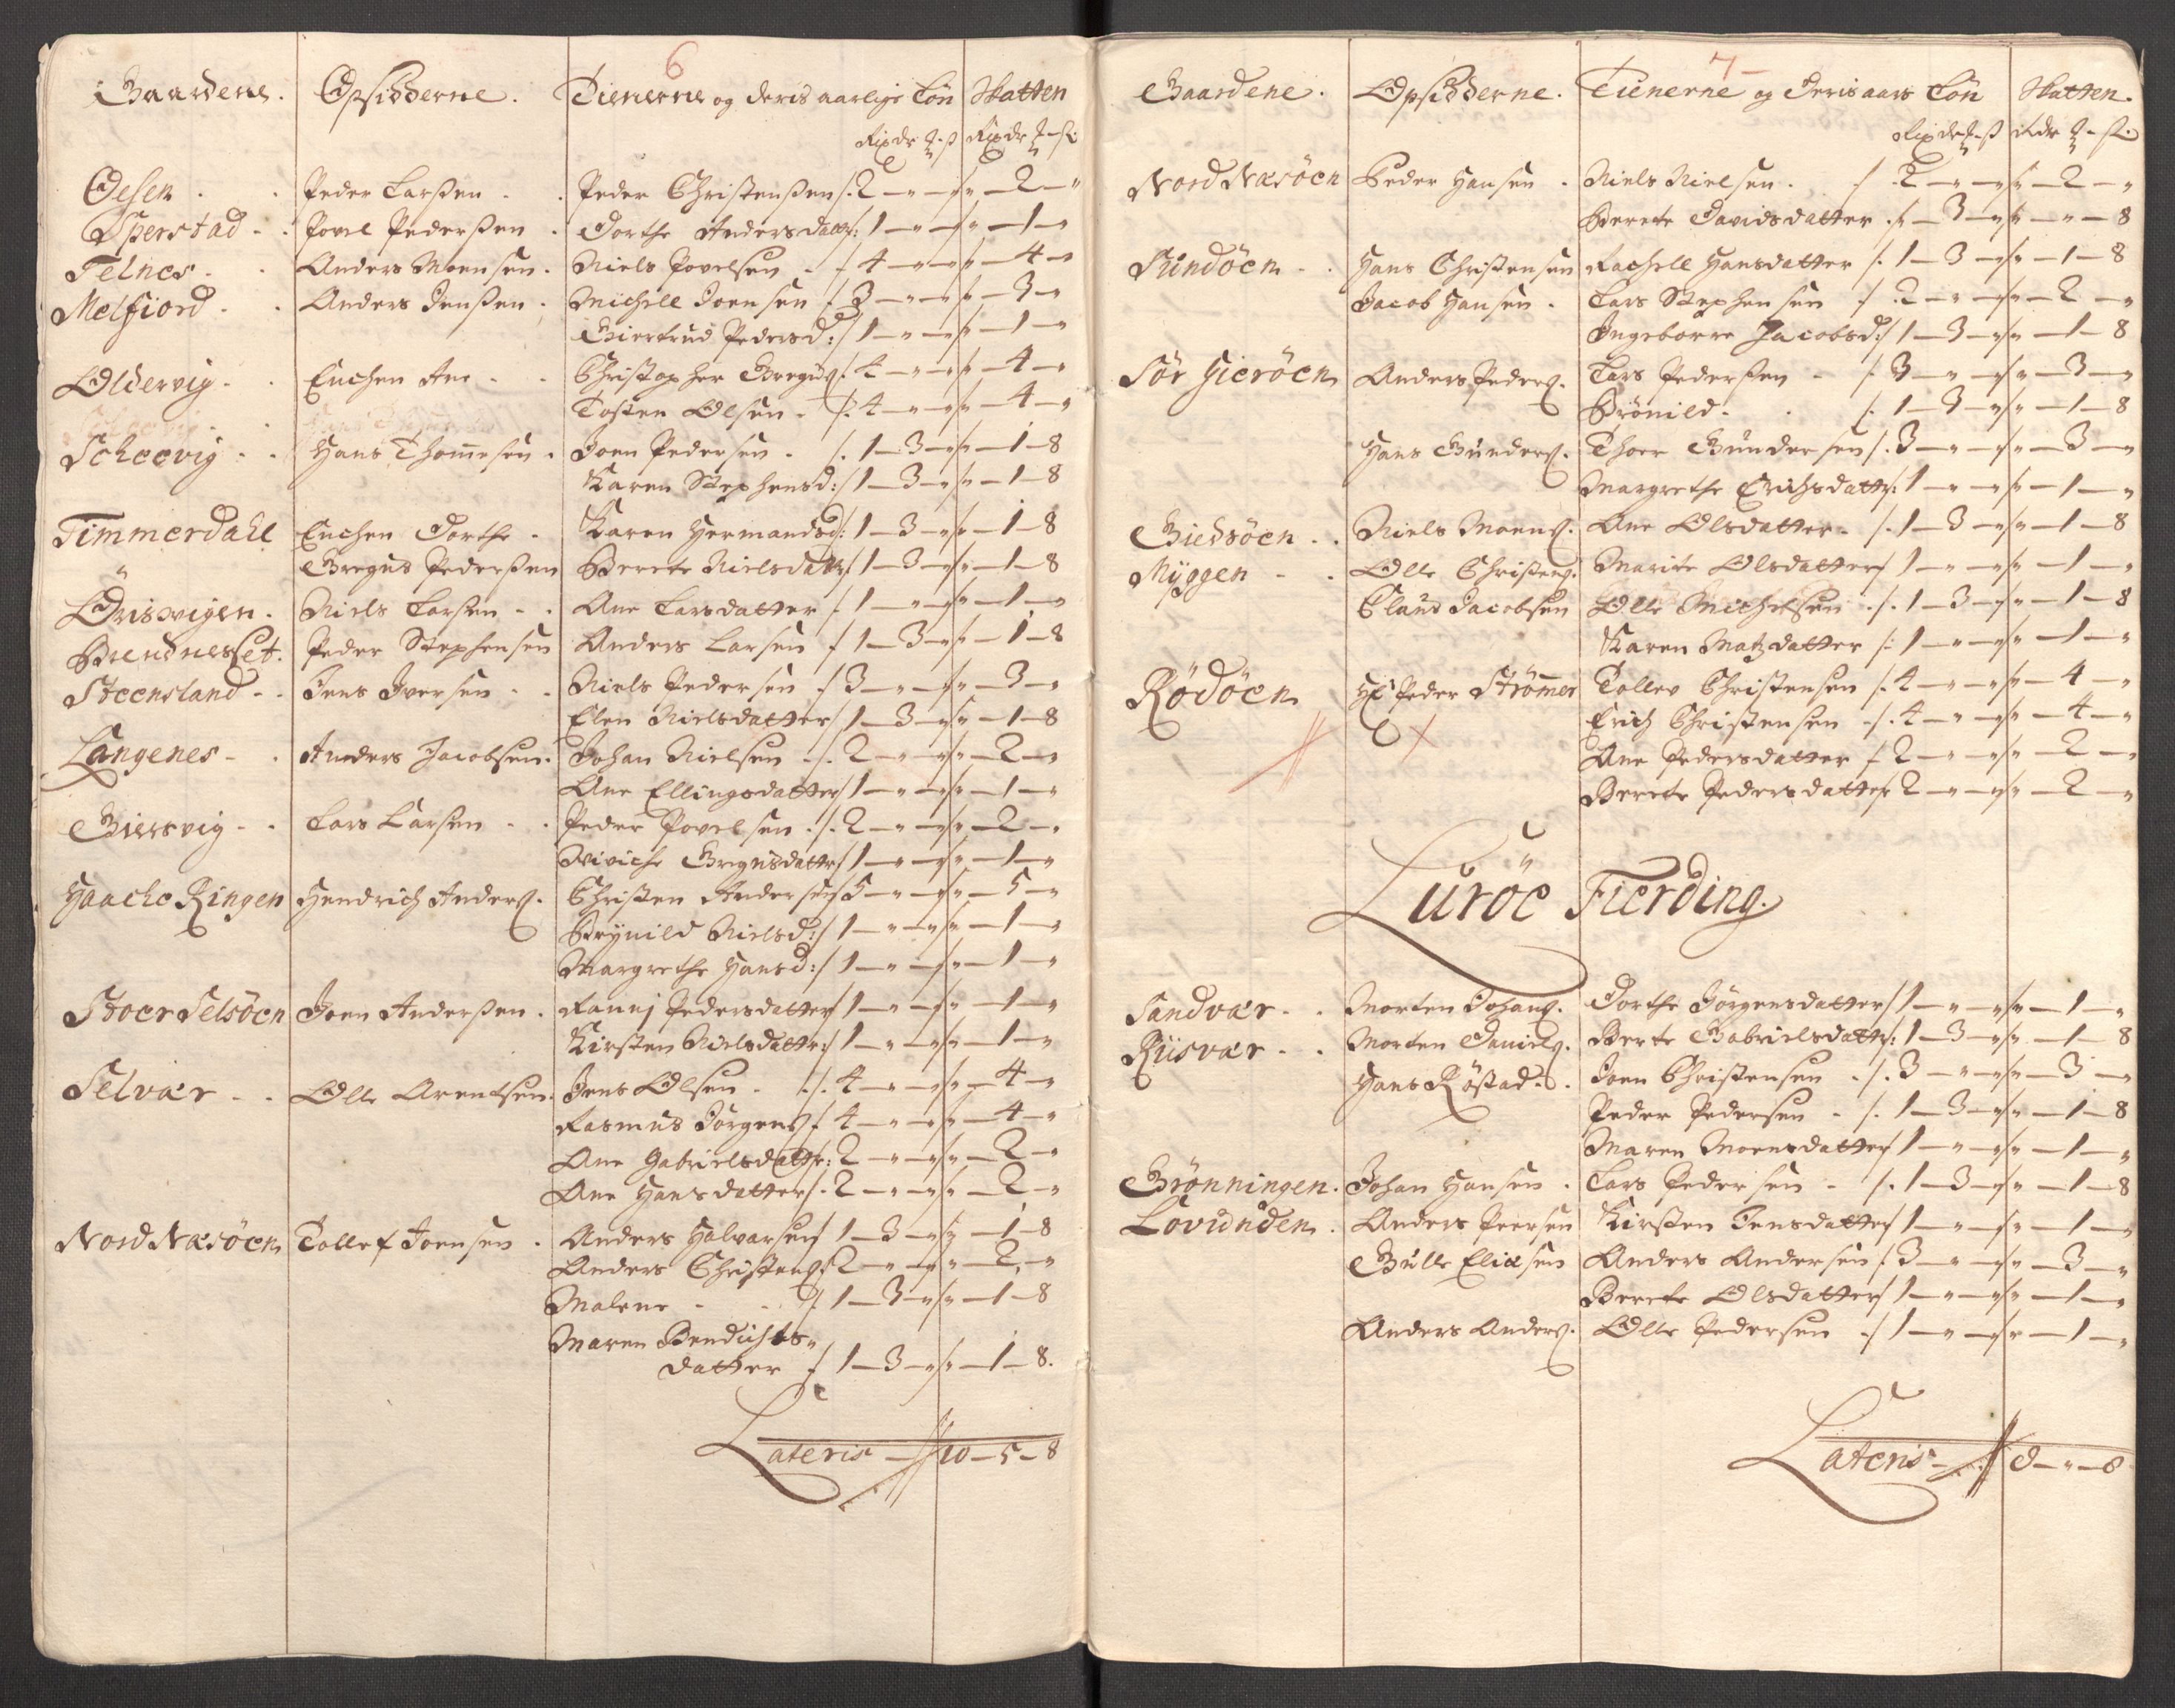 6
Gaardene. Opsidderne. Tienerne og deris aarlige Løn Skatten
Rixdr ß Rixdr ß
Oesen Peder Larßen Peder Christenßen 2 – „ – „ 2 – „
Operstad Povel Pederßen Dorthe Andersdattr: 1 – „ – „ 1 – „
Telnes Anders Monsen Niels Povelsen 4 – „ – „ 4 – „
Melfiord Anders Jenßen Michell Joensen 3 – „ – „ 3 – „
Giertrud Pedersd: 1 – „ – „ 1 – „
Oldervig Enchen Ane Christopher Greguss. 4 – „ – „ 4 – „
Tosten Olsen 4 – „ – „ 4 – „
Scheevig Hans Thommesen Joen Pedersen 1 – 3 – „ 1 – 8
Karen Stephensd: 1 – 3 – „ 1 – 8
Timmerdahl Enchen Dorthe Karen Hermandsd: 1 – 3 – „ 1 – 8
Gregus Pederßen Berete Nielsdatt: 1 – 3 – „ 1 – 8
Örisvigen Niels Larsen Ane Larsdatter 1 – „ – „ 1 – „
Brendneslet Peder Stephensen Anders Larsen 1 – 3 – „ 1 – 8
Steensland Jens Iversen Niels Pedersen 3 – „ – „ 3 – „
Elen Nielsdatter 1 – 3 – „ 1 – 8
Langenes Anders Jacobsen Johan Nielsen 2 – „ – „ 2 – „
Ane Ellingsdatter 1 – „ – „ 1 – „
Giersvig Lars Larsen Peder Povelsen 2 – „ – „ 2 – „
Viviche Gregusdattr 1 – „ – „ 1 – „
Haache Ringen Hendrich Anders. Christen Andersen 5 – „ – „ 5 – „
Brynild Nielsd: 1 – „ – „ 1 – „
Margrethe Hansd: 1 – „ – „ 1 – „
Stoer Selsöen Joen Anderßen Ranni Pedersdatter 1 – „ – „ 1 – „
Kirsten Nielsdattr: 1 – „ – „ 1 – „
Selvær Olle Arentsen Jens Olsen 4 – „ – „ 4 – „
Rasmus Jörgens. 4 – „ – „ 4 – „
Ane Gabrielsdattr: 2 – „ – „ 2 – „
Ane Hansdatter 2 – „ – „ 2 – „
Nord Næsöen Tollef Joensen Anders Halvarsen 1 – 3 – „ 1 – 8
Anders Christens. 2 – „ – „ 2 – „
Malene 1 – 3 – „ 1 – 8
Maren Bendichts
datter 1 – 3 – „ 1 – 8.
Lateris 10 – 5 – 8
7
Gaardene. Opsidderne. Tienerne og deris aars Løn Skatten.
Rixdr ß Rdr ß
Nord Næsöen Peder Hansen Niels Nielsen 2 – „ – „ 2 – „
Berete Davidsdatter „ – 3 – „ „ – 8
Rindöen Hans Christensen Rachell Hansdatter 1 – 3 – „ 1 – 8
Jacob Hansen Lars Stephensen 2 – „ – „ 2 – „
Ingeborre Jacobsd: 1 – 3 – „ 1 – 8
Sör Gieröen Anders Peders. Lars Pederßen 3 – „ – „ 3 – „
Brönild 1 – 3 – „ 1 – 8
Hans Gunders. Thoer Gundersen 3 – „ – „ 3 – „
Margrethe Erichsdattr: 1 – „ – „ 1 – „
Giedsöen Niels Moens. Ane Olsdatter 1 – 3 – „ 1 – 8
Myggen Olle Christens. Marite Olsdatter 1 – „ – „ 1 – „
Claus Jacobsen Olle Michelsen 1 – 3 – „ 1 – 8
Karen Matzdatter 1 – „ – „ 1 – „
Rödöen Hr Peder Strömer Tollev Christensen 4 – „ – „ 4 – „
Erich Christensen 4 – „ – „ 4 – „
Ane Pedersdatter 2 – „ – „ 2 – „
Berete Pedersdatter 2 – „ – „ 2 – „
Luröe Fierding.
Sandvær Morten Johans. Dorthe Jörgensdatter 1 – „ – „ 1 – „
Riisvær Morten Daniels. Berte Gabrielsdattr: 1 – 3 – „ 1 – 8
Hans Röstad Joen Christensen 3 – „ – „ 3 – „
Peder Pedersen 1 – 3 – „ 1 – 8
Maren Moensdatter 1 – „ – „ 1 – „
Grönningen. Johan Hansen Lars Pedersen 1 – 3 – „ 1 – 8
Lovunden Anders Peersen Kirsten Jensdatter 1 – „ – „ 1 – „
Gulle Eliasen Anders Andersen 3 – „ – „ 3 – „
Berete Olsdatter 1 – „ – „ 1 – „
Anders Anders. Olle Pedersen 1 – „ – „ 1 – „
Lateris 8 – „ – 8